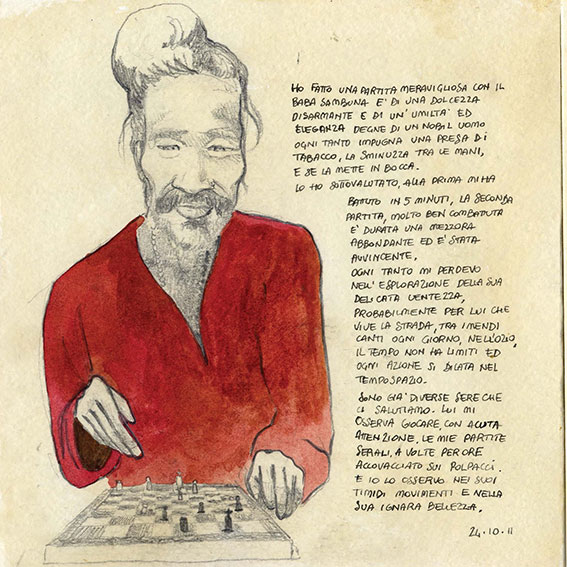 HO FATTO UNA PARTITA MERAVIGLIOSA CON IL
BABA SAMBUNA E' DI UNA DOLCEZZA
DISARMANTE E DI UN' UMILTA' ED
ELEGANZA DEGNE DI UN NOBIL UOMO
OGNI TANTO IMPUGNA UNA PRESA DI
TABACCO, LA SMINUZZA TRA LE MANI,
E SE LA METTE IN BOCCA.
LO HO SOTTOVALUTATO, ALLA PRIMA MI HA
BATTUTO IN 5 MINUTI, LA SECONDA
PARTITA, MOLTO BEN COMBATTUTA
E' DURATA UNA MEZZORA
ABBONDANTE ED E' STATA
AVVINCENTE,
OGNI TANTO MI PERDEVO
NELL' ESPLORAZIONE DELLA SUA
DELICATA LENTEZZA,
PROBABILMENTE PER LUI CHE
VIVE LA STRADA, TRA I MENDI
CANTI OGNI GIORNO, NELL'OZIO,
IL TEMPO NON HA LIMITI ED
OGNI AZIONE SI DILATA NEL
TEMPOSPAZIO.
SONO GIA' DIVERSE SERE CHE
CI SALUTIAMO. LUI MI
OSSERVA GIOCARE, CON ACUTA
ATTENZIONE, LE MIE PARTITE
SERALI, A VOLTE PER ORE
ACCOVACCIATO SUI POLPACCI.
E IO LO OSSERVO NEI SUOI
TIMIDI MOVIMENTI E NELLA
SUA IGNARA BELLEZZA.
24.10.11